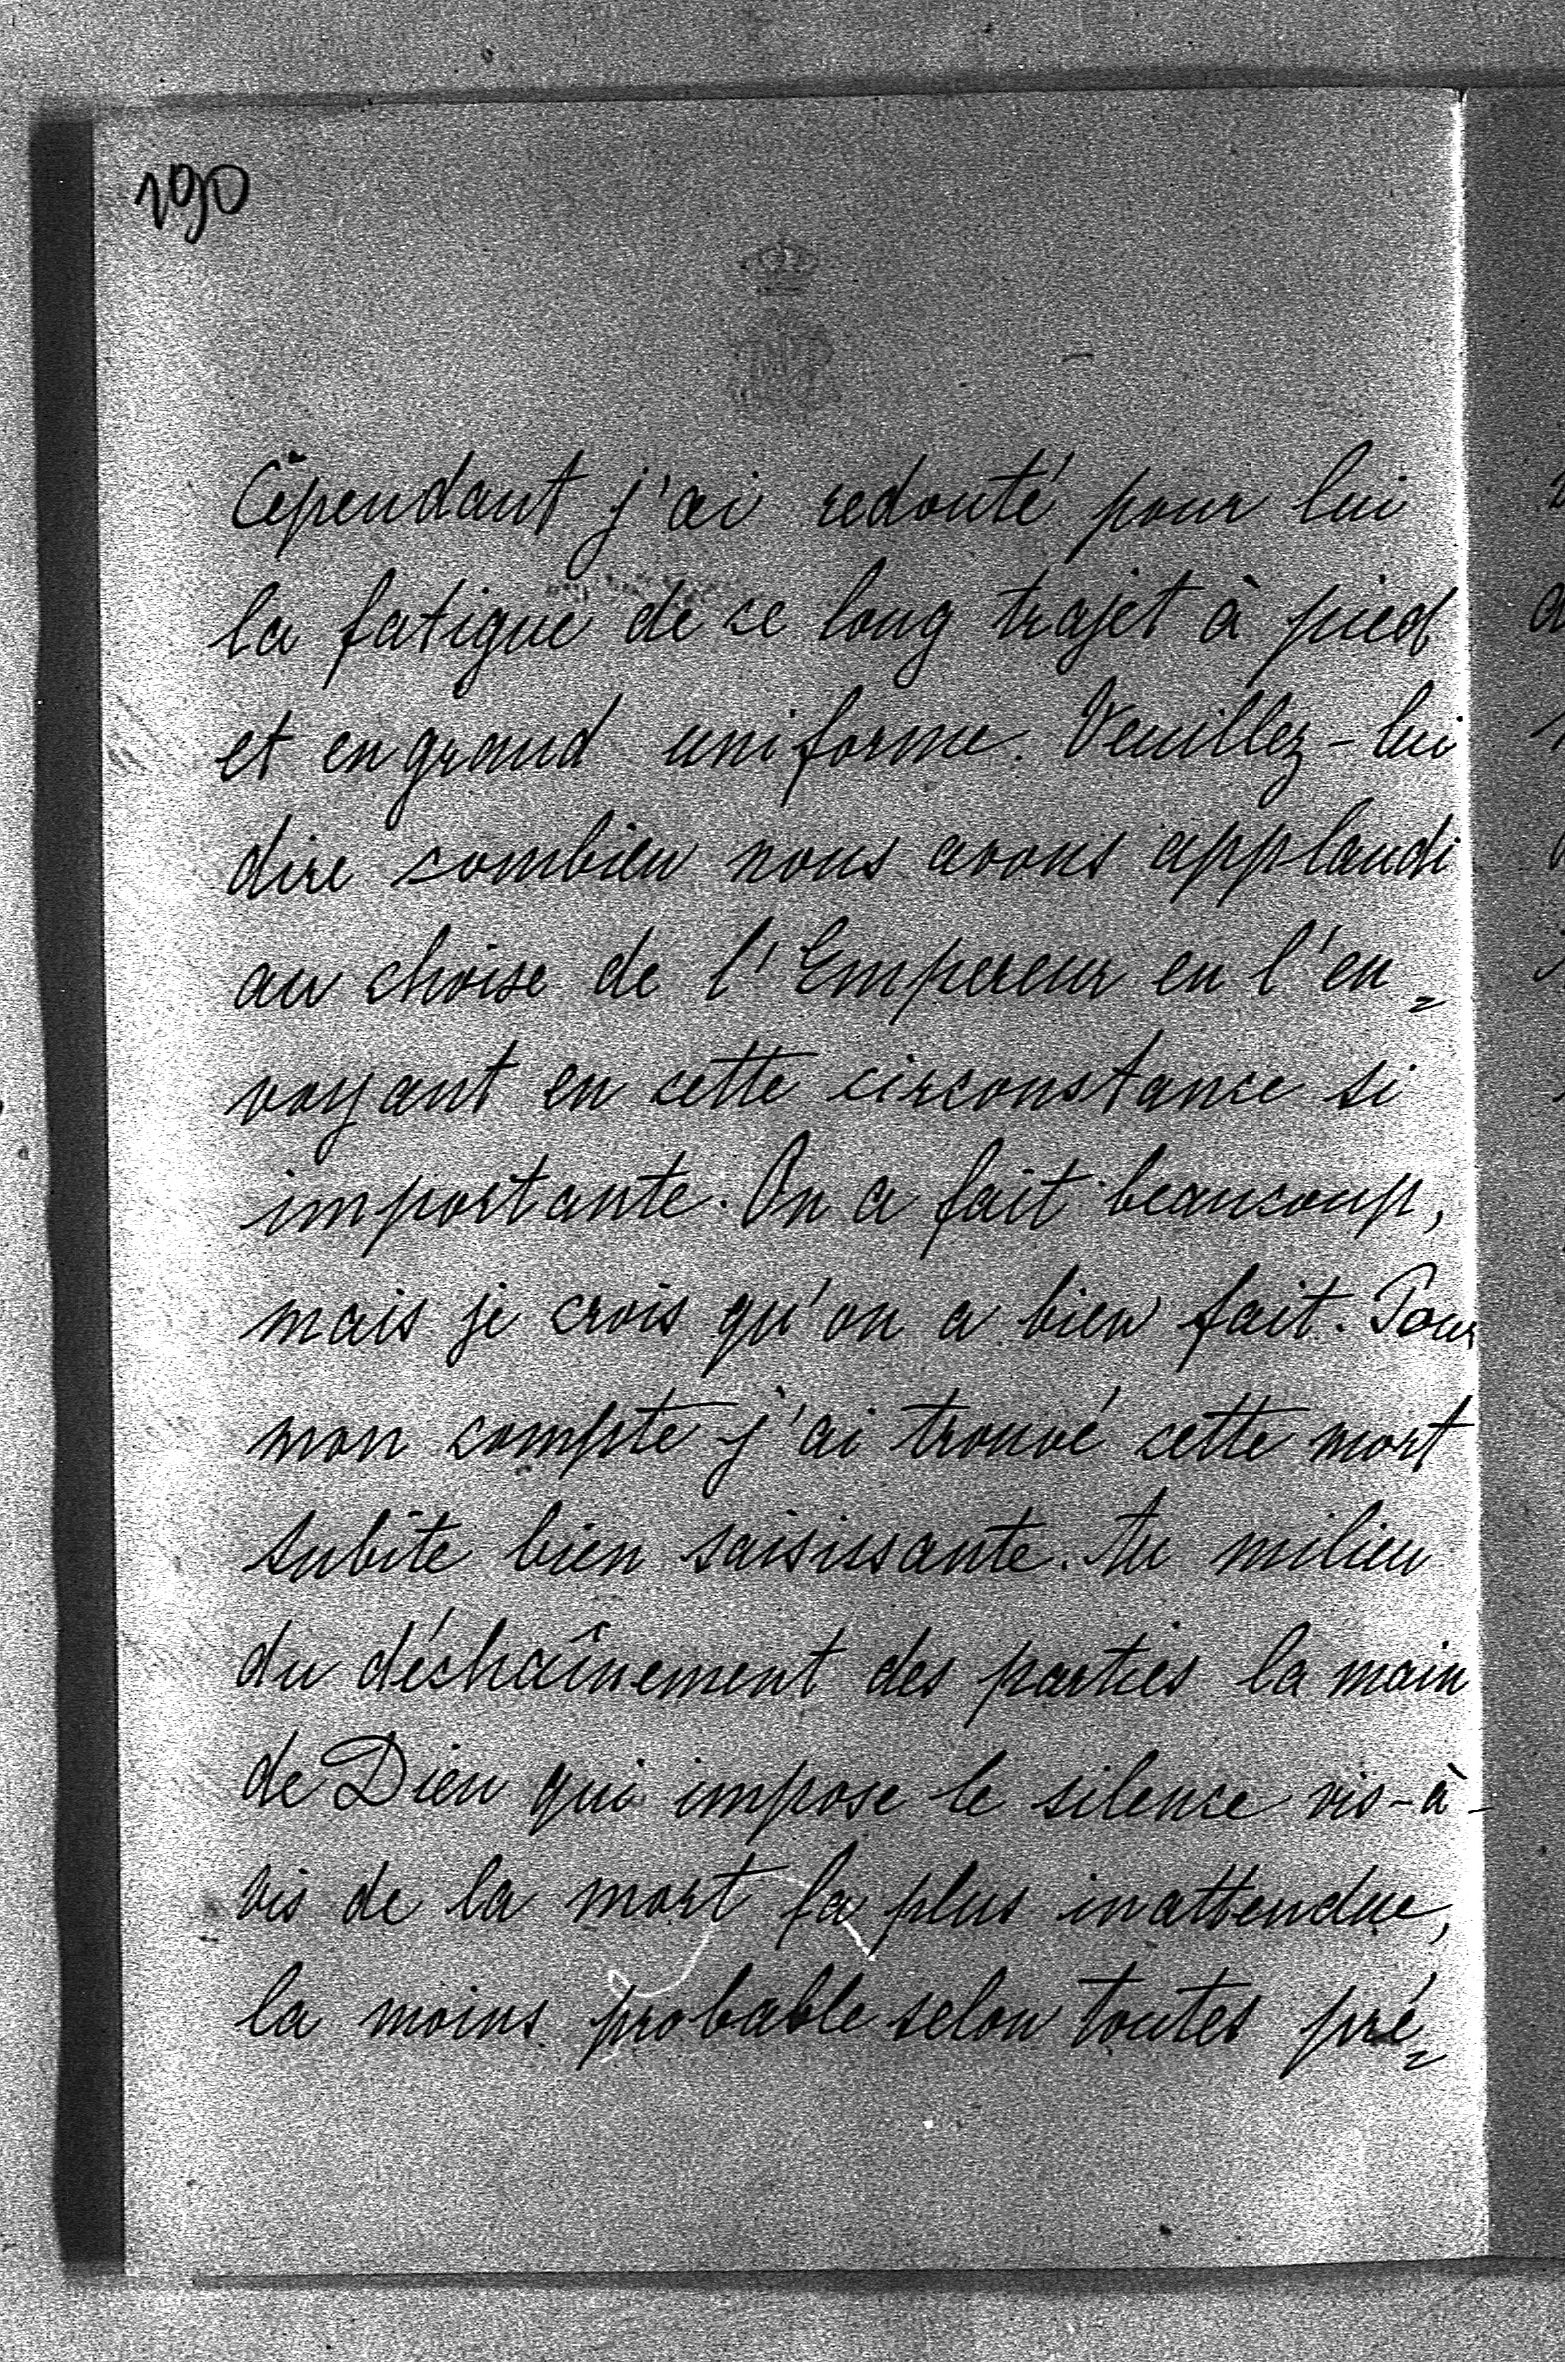 190
Cependant j'ai redouté pour lui
la fatigue de ce long trajet à pied
et en grand uniforme. Veuillez-lui
dire combien nous avons applaudi
au choise de l'Empereur en l'en=
voyant en cette circonstance si
importante. On a fait beaucoup,
mais je crois qu'on a bien fait. Pour
mon compte j'ai trouvé cette mort
subite bien saisissante. Au milieu
du déchaînement des parties la main
de Dieu qui impose le silence vis-à-
vis de la mort la plus inattendue,
la moins probable selon toutes pré=